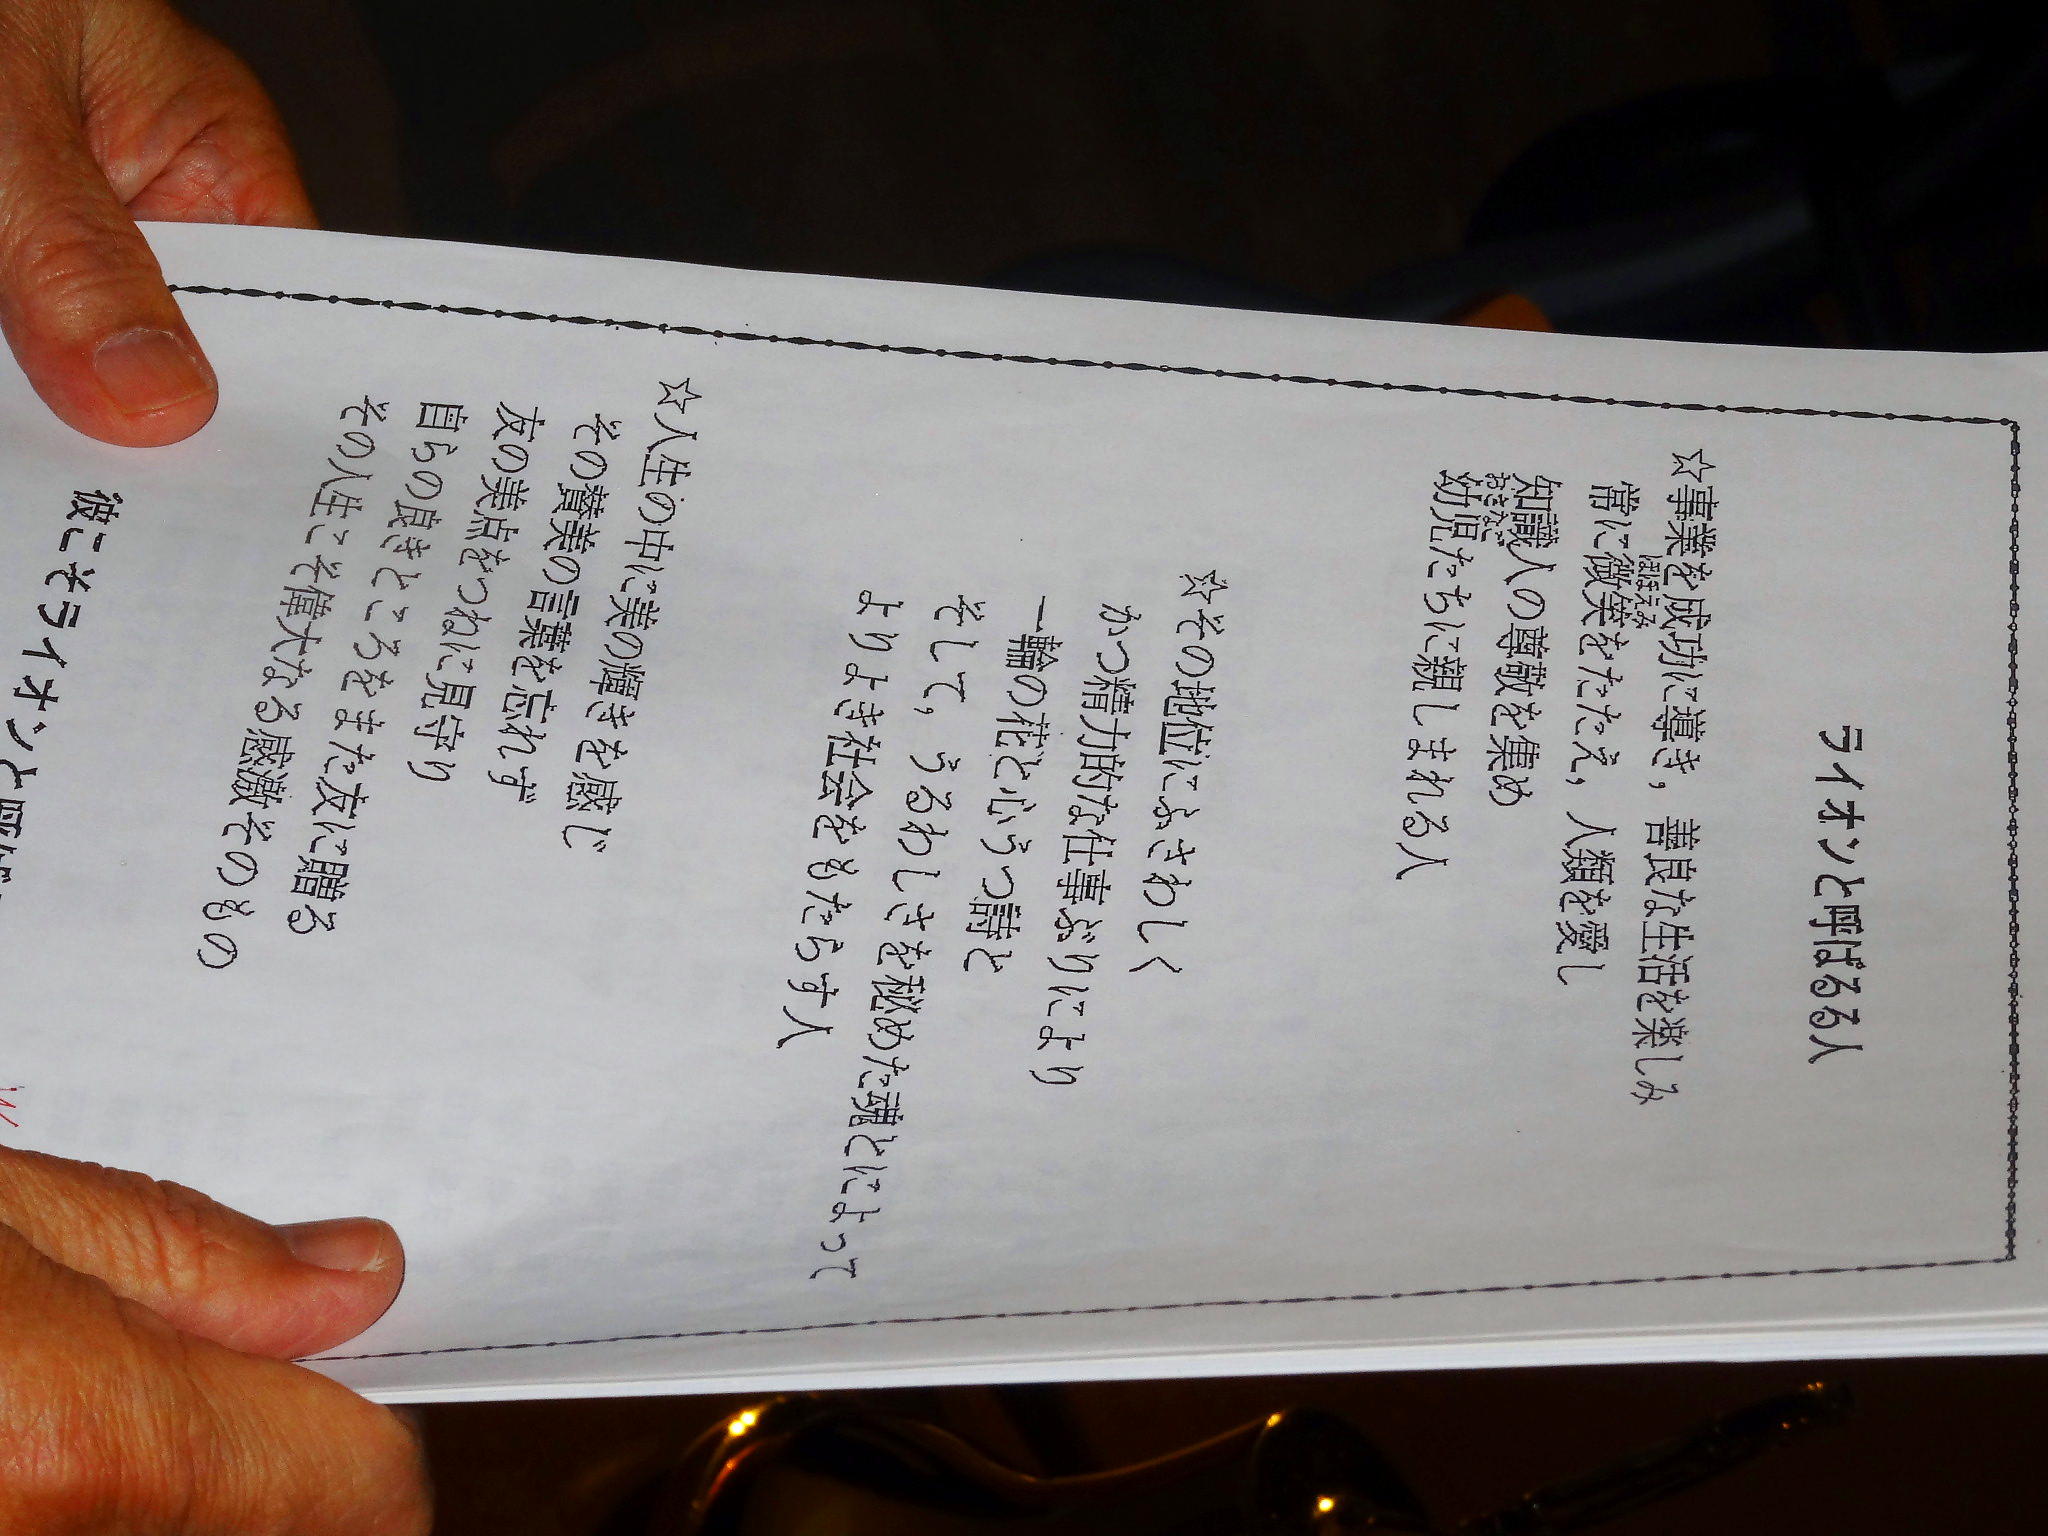 ライオンと呼ばるる人
☆事業を成功に導き，善良な生活を楽しみ
常に微笑をたたえ，人類を愛し
ほほえみ
知識人の尊敬を集め
幼児たちに親しまれる人
おさなご
☆その地位にふさわしく
かつ精力的な仕事ぶりにより
一輪の花と心うつ詩と
そして，うるわしさを秘めた魂とによって
よりよき社会をもたらす人
☆人生の中に美の輝きを感じ
その賛美の言葉を忘れず
友の美点をつねに見守り
自らの良きところをまた友に贈る
その人生こそ偉大なる感激そのもの
彼こそライオンと呼ば